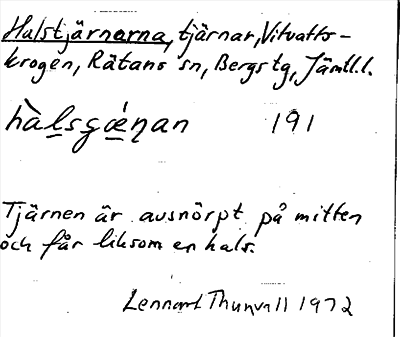 Halstjärnarna, tjärnar, Vitvatts-
krogen, Rätans sn, Bergs tg, Jämtl.l.
hàlsgǽṇan 191
Tjärnen är avsnörpt på mitten
och får liksom en hals.
Lennart Thunvall 1972